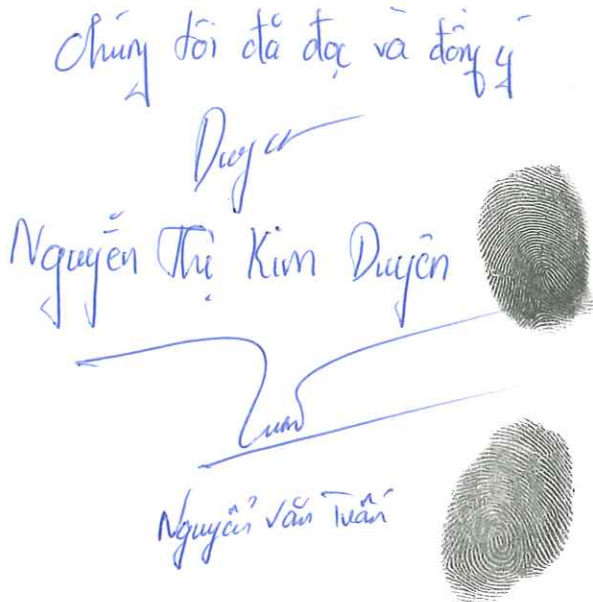 Chúng tôi đã đọc và đồng ý
Duyên
Nguyễn Thị Kim Duyên
Tuấn
Nguyễn Văn Tuấn